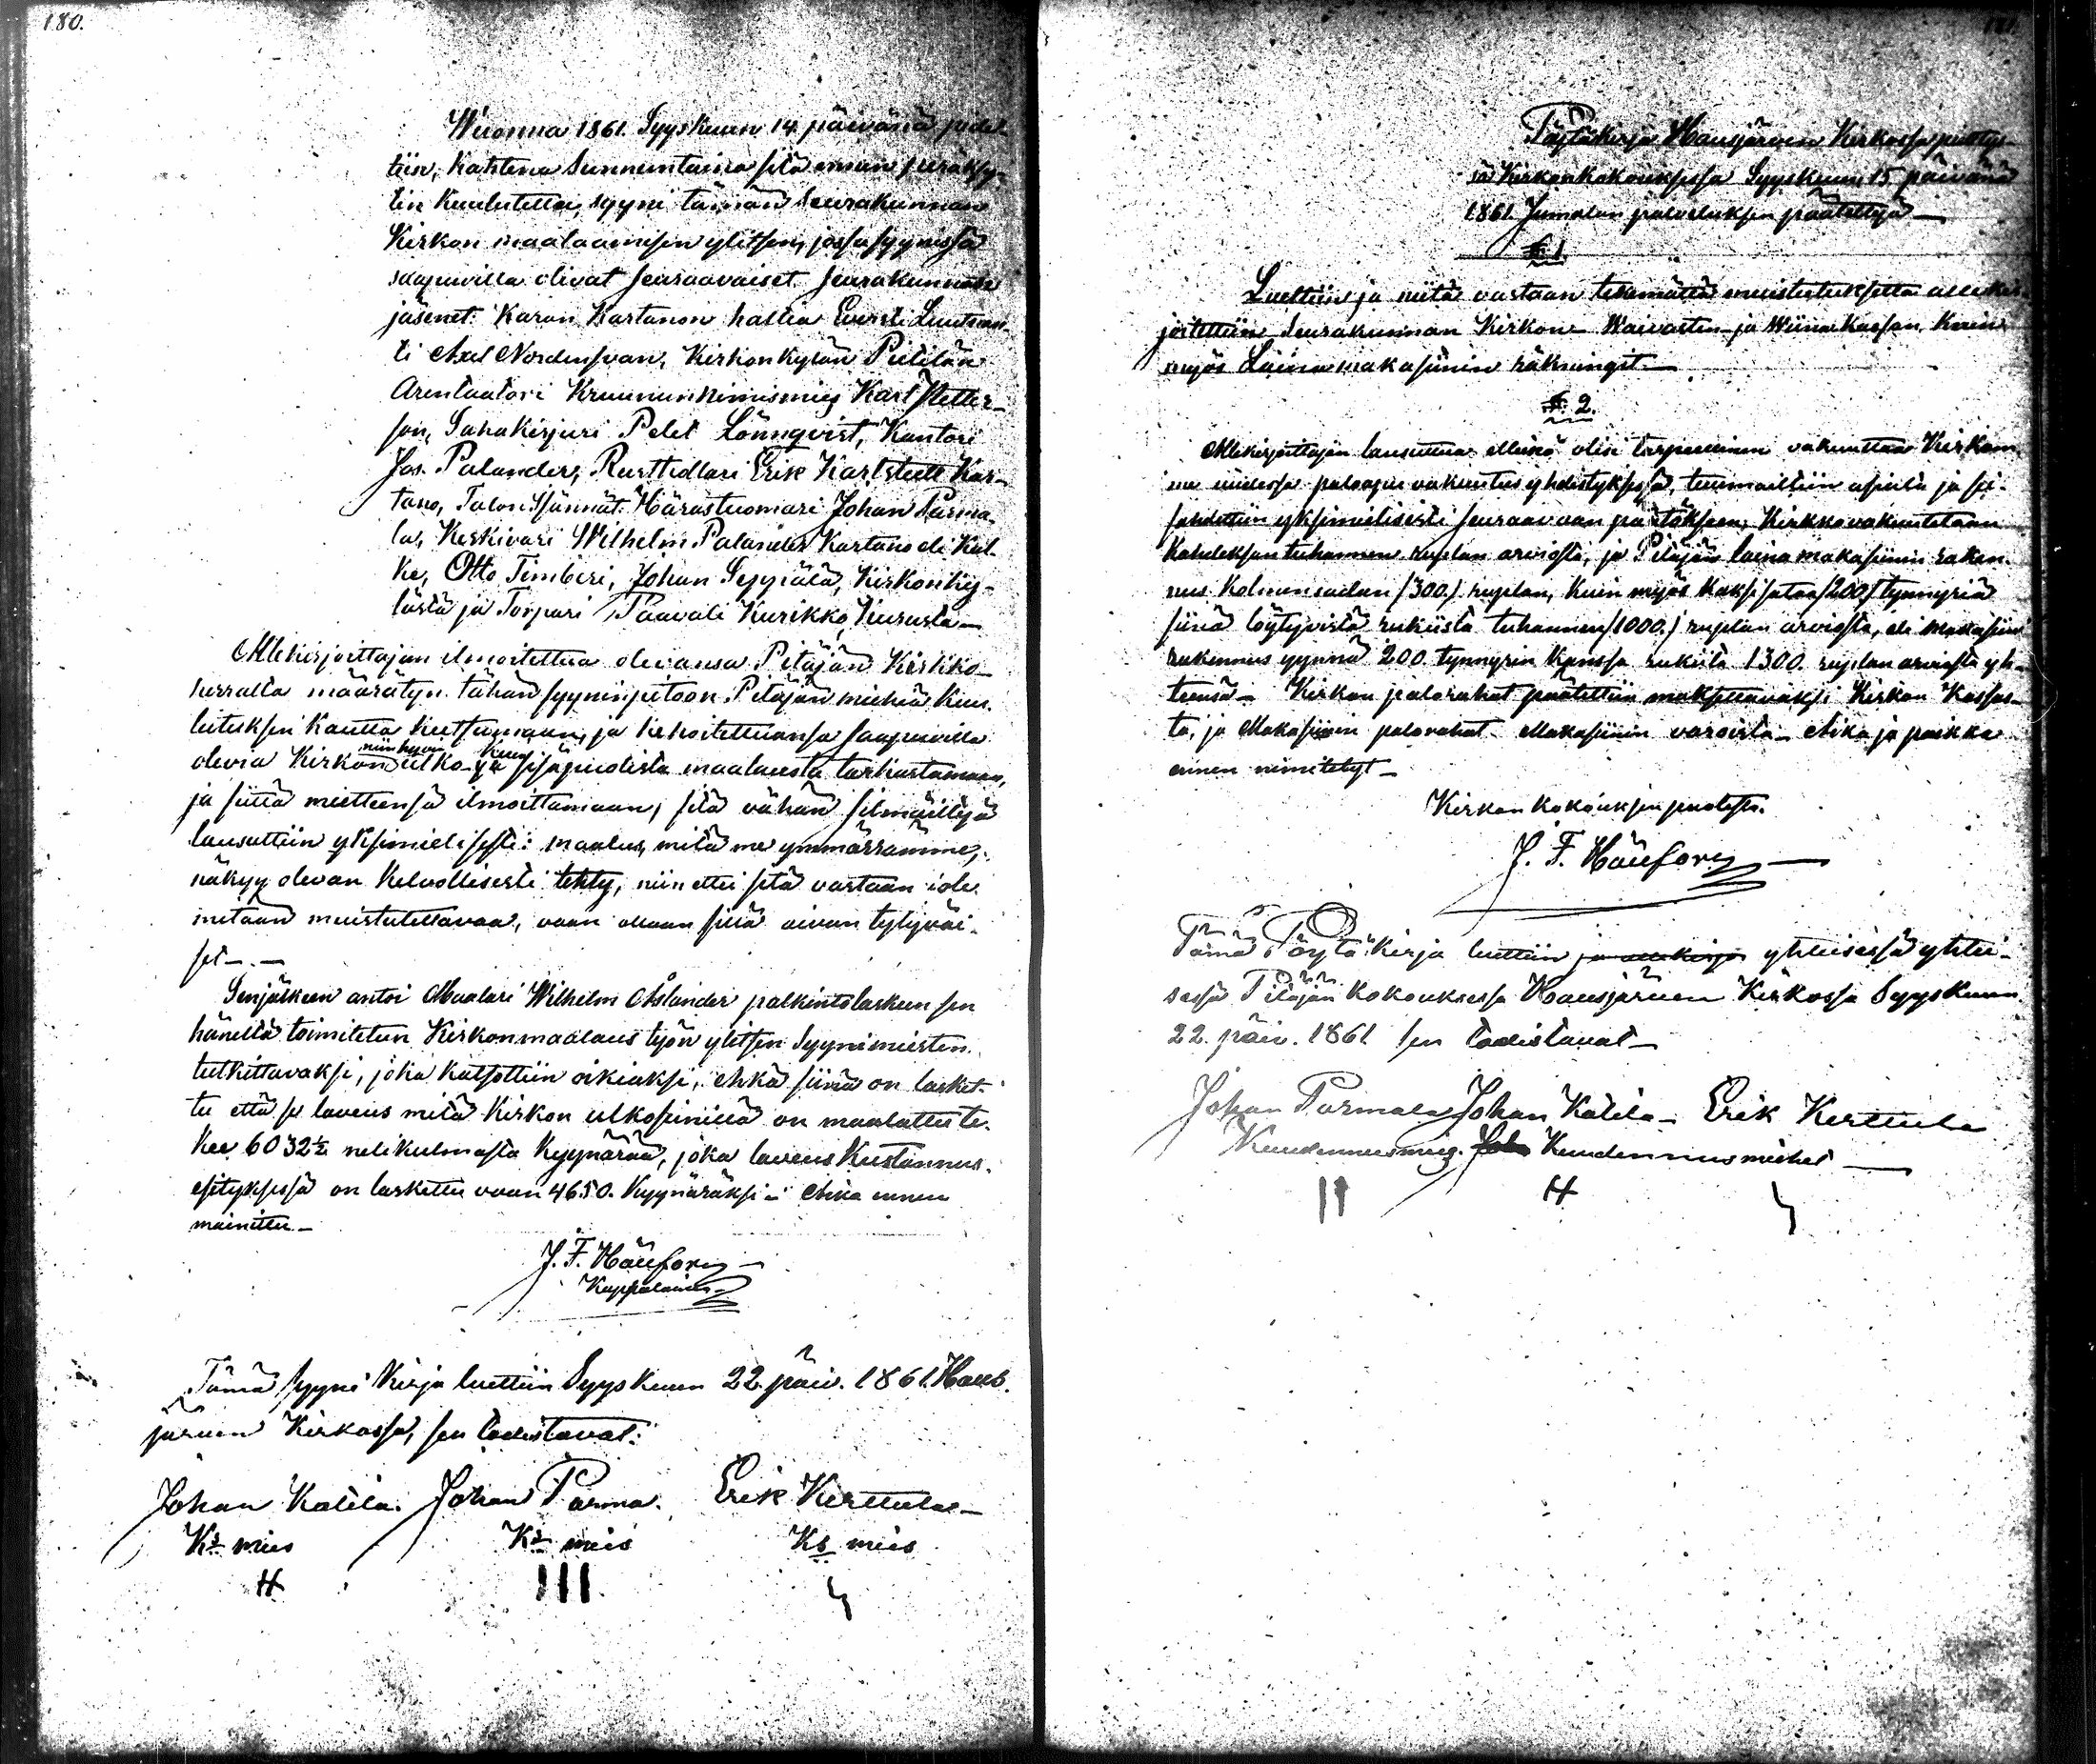 180.
Wuonna 1861. Syyskuun 14. päivänä pidet-
tiin, kahtena Sunnuntaina sitä ennan peräksy-
tin kuulutettu, syyni tämän Seurakunnan
Kirkon maalaamisen ylitsen, jossa syynissä
saapuvilla olivat seuraavaiset seurakunnan
jäsenet: Karan Kartanon haltia Eversti Luutnan-
ti Axel Nordensvan, Kirkonkylän Pietilän
Arentaatori Kruununnimismies Karl Petter-
son, Sahakirjuri Pelet Lönnqvist, Kantori
Jos. Palander, Rusttidlari Erik Karlstedt Kar-
tano, Talon Isännät: Härästuomari Johan Parma-
la, Keskivari Wilhelm Palander Kartano eli Kul-
ke, Otto Timberi, Johan Seppälä, Kirkonky-
lästä ja Torpari Paavali Kurikko, Kurusta—
Allekirjoittajan ilmoitettua olevansa Pitäjän Kirkko-
herralta määrätyn tähän syyninpitoon Pitäjän miehiä kuu-
lutuksen kautta kutsumaan, ja kehoitettuansa saapuvilla
niinhyvin kuin
olevia Kirkon ulko- ja sisäpuolista maalausta tarkastamaan,
ja siitä mielteensä ilmoittamaan, sitä vähän silmäiltyä
lausuttiin yksimielisesti: maalus, mitä me ymmärrämme,
näkyy olevan kelvollisesti tehty, niin ettei sitä vastaan i ole
mitään muistutettavaa, vaan ollaan siitä aivan tytyväi-
set—.—
Senjälkeen antoi Maalari Wilhelm Åslander palkintolaskun sen
häneltä toimitetun Kirkonmaalaus työn ylitsen Syynimiesten
tutkittavaksi, joka katsottiin oikiaksi, ehkä siinä on lasket-
tu että se laveus mitä Kirkon ulkoseinillä on maalattu te-
kee 6032½ nelikulmasta kyynärää, joka laveus Kustannus-
esityksessä on laskettu vaan 4650. kyynäräksi— Aika ennen
mainittu—
J. F. Häufors—
Kappalainen
Tämä syyni Kirja luettiin Syyskuun 22. päiv. 1861. Haus-
järven Kirkossa, sen todistavat:
Johan Katila. Johan Parma. Erik Kerttula—
Ks mies Ks mies Ks mies
H III
Pöytäkirja Hausjärven Kirkossa pidetys-
sä Kirkonkokouksessa Syyskuun 15 päivänä
1861. Jumalan palveluksen päätettyä—
§ 1.
Luettiin ja niitä vastaan tekemättä muistutuksetta allekir-
joitettiin Seurakunnan Kirkon- Waivasten- ja Wiina Kassan, kuin
myös Lainamakasiinin räkningit.—
§ 2.
Allekirjoittajan lausuttua olisi tarpeellinen vakuuttaa Kirkom-
me palоapu vakuutus yhdistyksessä, tuumailtiin asiata ja se-
suhduttiin yksimielisesti seuraavaan päätökseen, Kirkko vakuutetaan
kahdeksan tuhannen ruplan arviosta, ja Pitäjän laina makasiinin raken-
nus kolmensadan /300./ ruplan, kuin myös kaksi sataa /200/ tynnyriä
siinä löytyvistä rukiista tuhannen /1000./ ruplan arviosta, eli makasiini
rakennus ynnä 200 tynnyrin kanssa rukiita 1300. ruplan arviosta yh-
teensä— Kirkon palorahat päätettiin maksettavaksi Kirkon Kassas-
ta, ja Makasiinin palorahat Makasiinin varoista— Aika ja paikka
ennen nimitetyt—
Kirkon kokouksen puolesta.
J. F. Häufors—
Tämä Pöytä Kirja luettiin yhteisessä yhtei-
sessä Pitäjän kokouksessa Hausjärven Kirkossa Syyskuun
22. päiv. 1861 sen todistavat—
Johan Parmala Johan Katila— Erik Kerttula
Kuudennusmies. Joh Kuudennusmiehet—
II H